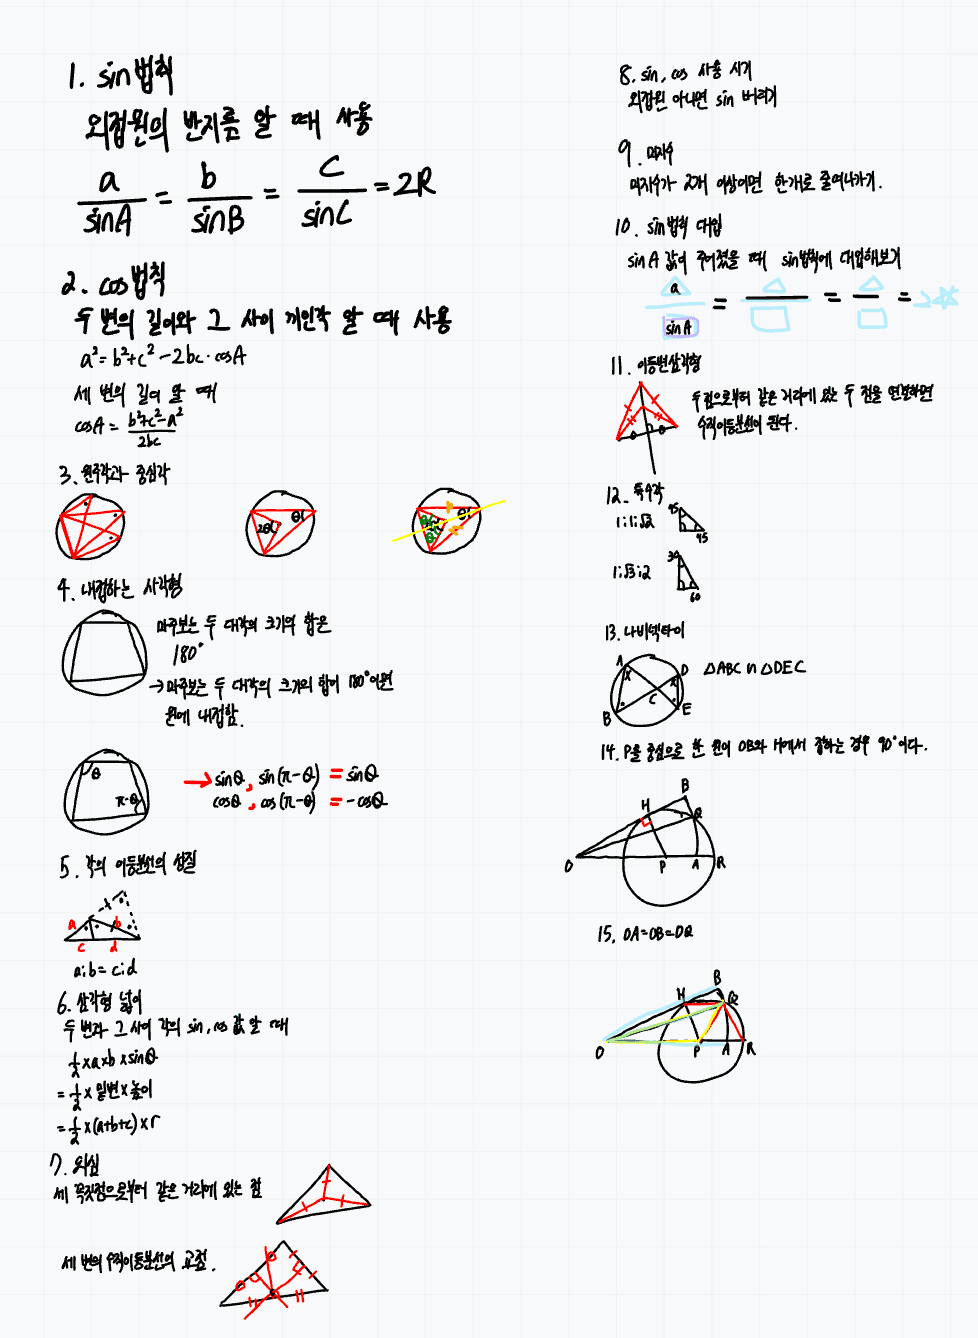 1. sin법칙
외접원의 반지름 알 때 사용
a/sinA = b/sinB = c/sinC = 2R
2. cos법칙
두 변의 길이와 그 사이 끼인각 알 때 사용
a²= b²+c² -2bc·cosA
세 변의 길이 알 때
cosA = b²+c²-a²/2bc
3. 원주각과 중심각
2θ θ
θ θ θ
4. 내접하는 사각형
마주보는 두 대각의 크기의 합은
180°
→마주보는 두 대각의 크기의 합이 180°이면
원에 내접함.
θ
π-θ
→ sinθ, sin(π-θ) = sinθ
cosθ, cos(π-θ) = -cosθ
5. 각의 이등분선의 성질
a b
c d
a:b = c:d
6. 삼각형 넓이
두 변과 그 사이 각의 sin, cos 값 알 때
½×a×b×sinθ
=½×밑변×높이
=½×(a+b+c)×r
7. 외심
세 꼭짓점으로부터 같은 거리에 있는 점
세 변의 수직이등분선의 교점.
8. sin, cos 사용 시기
외접원 아니면 sin 버리기
9. 미지수
미지수가 2개 이상이면 한개로 줄여나가기.
10. sin법칙 대입
sin A 값이 주어졌을 때 sin법칙에 대입해보기
a/sinA = △/□ = △/□ = 2☆
11. 이등변삼각형
두점으로부터 같은 거리에 있는 두 점을 연결하면
수직이등분선이 된다.
12. 특수각
1:1:√2
45
45
1:√3:2
30
60
13. 나비넥타이
A D
B C E
△ABC ∽ △DEC
14. P을 중심으로 한 원이 OB와 H에서 접하는 경우 90°이다.
B
H Q
O P A R
15. OA=OB=OQ
B
H Q
O P A R